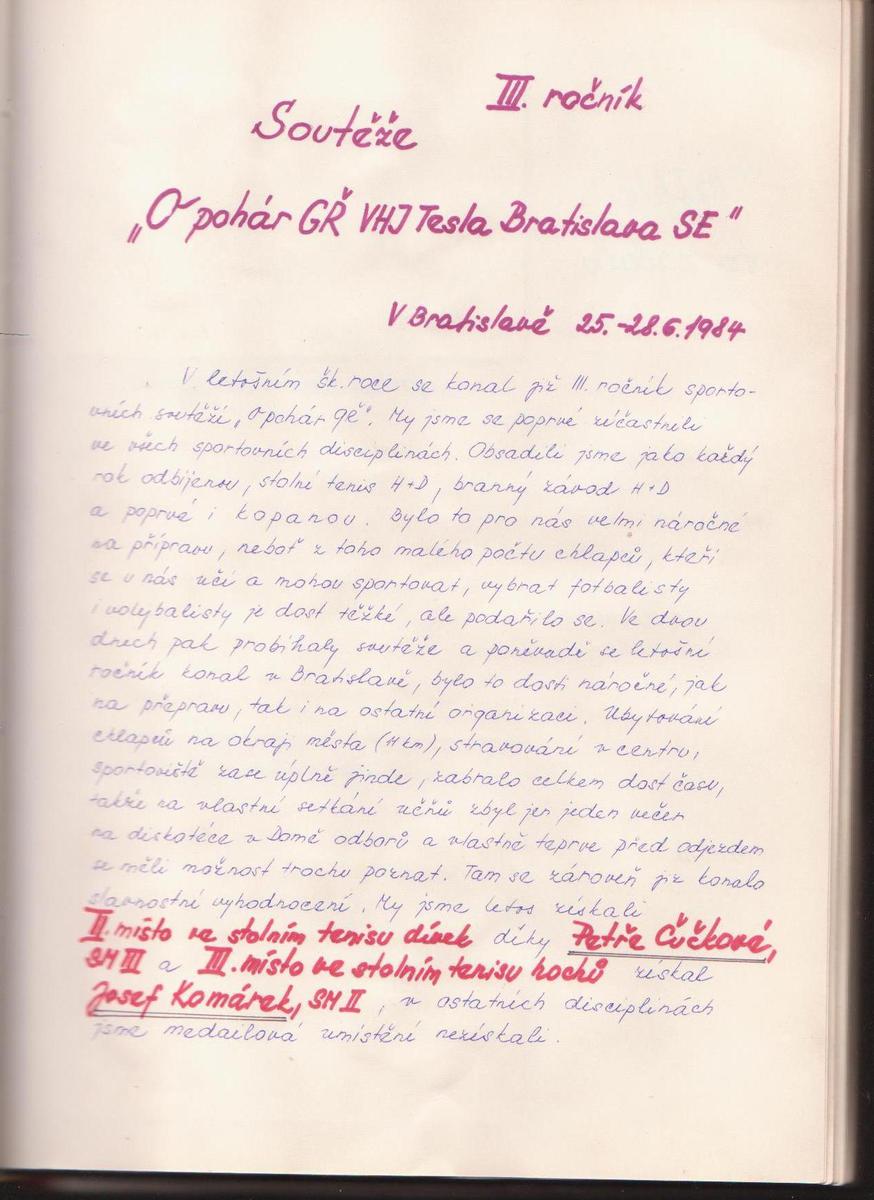 III. ročník
Soutěže
„O pohár GŘ VHJ Tesla Bratislava SE"
V Bratislavě 25.-28.6.1984
V letošním šk. roce se konal již III. ročník sporto-
vních soutěží „O pohár GŘ". My jsme se poprvé zúčastnili
ve všech sportovních disciplinách. Obsadili jsme jako každý
rok odbíjenou, stolní tenis H+D, branný závod H+D
a poprvé i kopanou. Bylo to pro nás velmi náročné
na přípravu, neboť z toho malého počtu chlapců, kteří
se u nás učí a mohou sportovat, vybrat fotbalisty
i volybalisty je dost těžké, ale podařilo se. Ve dvou
dnech pak probíhaly soutěže a poněvadž se letošní
ročník konal v Bratislavě, bylo to dosti náročné, jak
na přepravu, tak i na ostatní organizaci. Ubytování
chlapců na okraji města (11 km), stravování v centru,
sportoviště zase úplně jinde, zabralo celkem dost času,
takže na vlastní setkání učňů zbyl jen jeden večer
na diskotéce v Domě odborů a vlastně teprve před odjezdem
se měli možnost trochu poznat. Tam se zároveň již konalo
slavnostní vyhodnocení. My jsme letos získali
II. místo ve stolním tenisu dívek díky Petře Čučkové,
SM III a III. místo ve stolním tenisu hochů získal
Josef Komárek, SM II, v ostatních disciplinách
jsme medailová umístění nezískali.